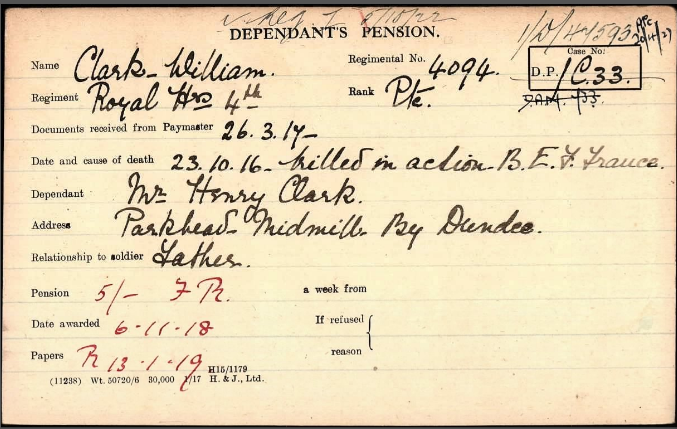 DEPENDANT'S PENSION.
1/D/47593
20/4/27
Name Clark William. Regimental No. 4094. Case No:
D.P. 1/C.33.
Regiment Royal Hrs 4th Rank Pte.
Documents received from Paymaster 26.3.17
Date and cause of death 23.10.16 killed in action B.E.F. France.
Dependant Mr Henry Clark.
Address Parkhead Midmill By Dundee.
Relationship to soldier Father.
Pension 5/- F R. a week from
Date awarded 6-11-18 If refused
reason
Papers R 13-1-19 H15/1179
(11238) Wt. 50720/6 30,000 1/17 H. & J., Ltd.